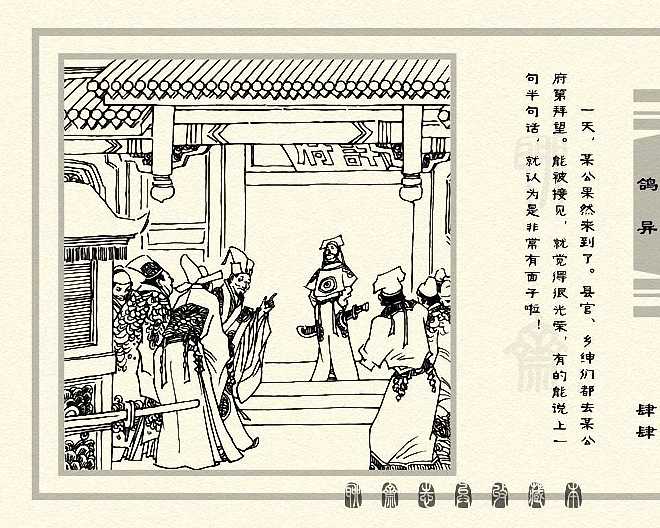 一天，某公果然来到了。县官、乡绅们都去某公
府第拜望。能被接见，就觉得很光荣，有的能说上一
句半句话，就认为是非常有面子啦！
鸽异
肆肆
許府